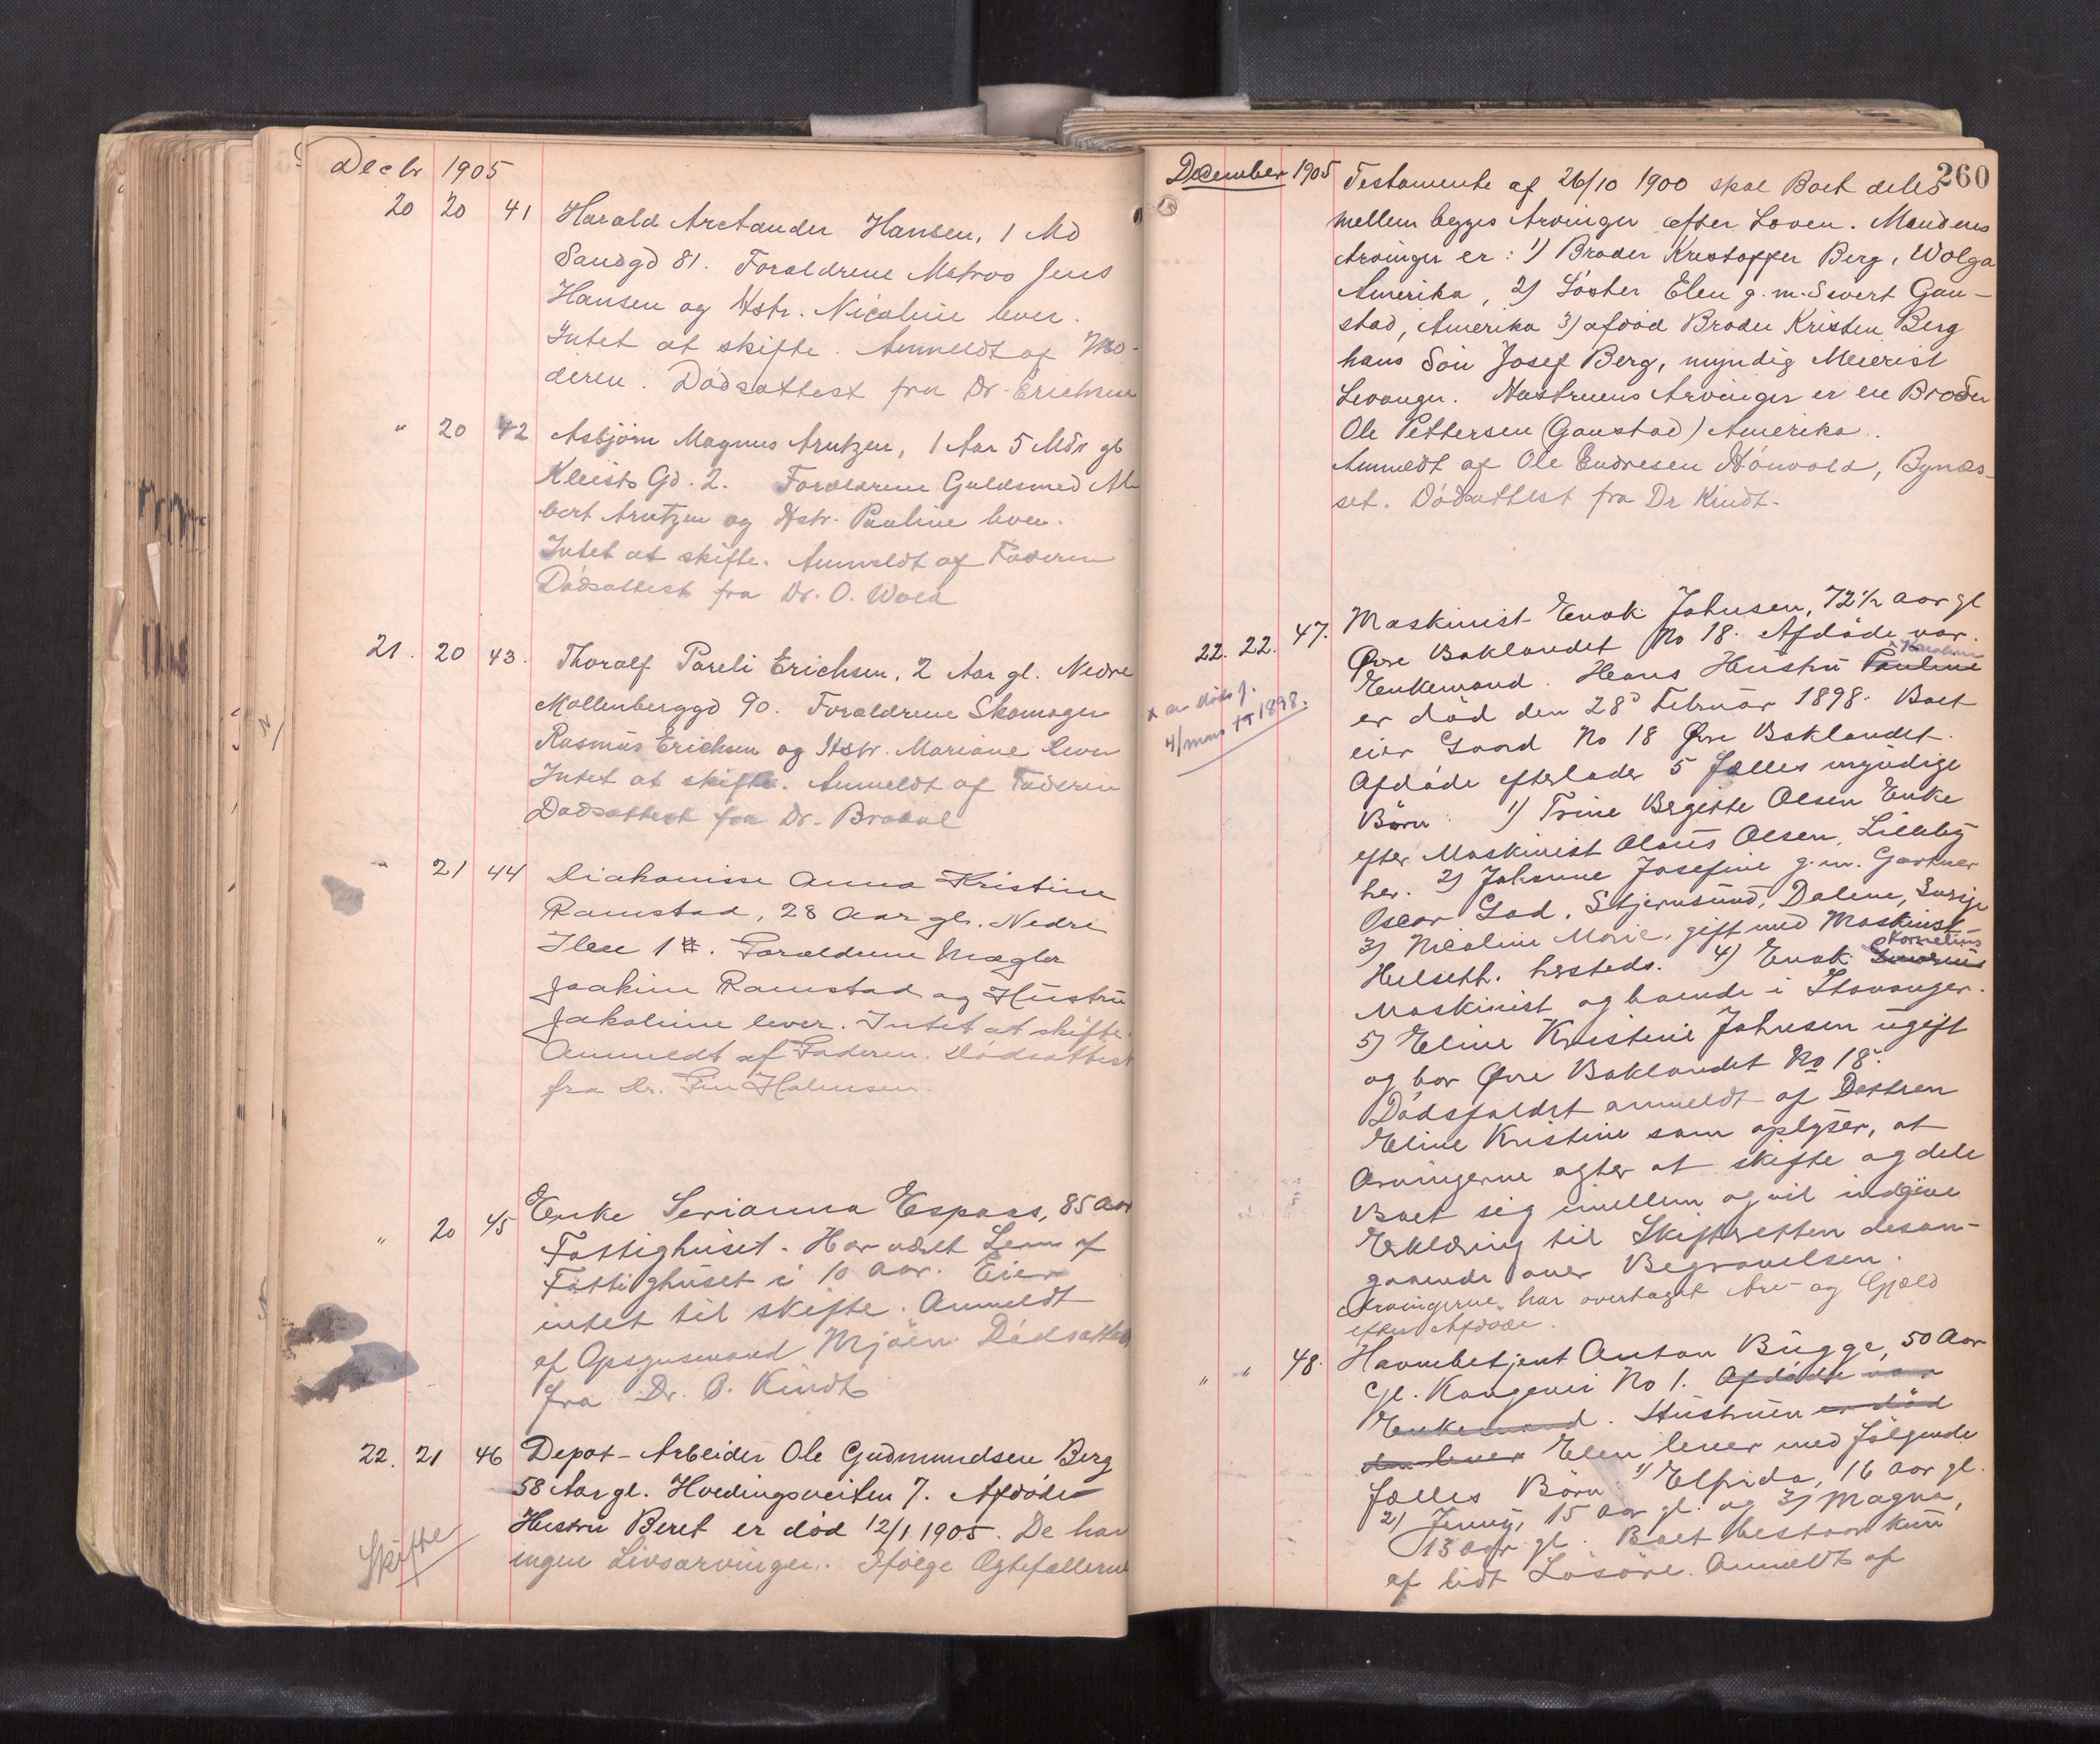 Decbr 1905
20 20 41 Harald Arctander Hansen, 1 Md
Sandgd 81. Forældrene Matros Jens
Hansen og Hstr. Nicoline lever.
Intet at skifte. Anmeldt af Mo-
deren. Dødsattest fra Dr. Erichsen
" 20 42 Asbjørn Magnus Arntzen, 1 Aar 5 Mdr gl
Kleists Gd. 2. Forældrene Guldsmed Al
bert Arntzen og Hstr. Pauline lever.
Intet at skifte. Anmeldt af Faderen
Dødsattest fra Dr. O. Wold
21. 20 43. Thoralf Pareli Erichsen, 2 Aar gl. Nedre
Møllenberggd 90. Forældrene Skomager
Rasmus Erichsen og Hstr. Mariane lever
Intet at skifte. Anmeldt af Faderen
Dødsattest fra Dr.
" 21 44 Diakonisse Anna Kristine
Ramstad, 28 Aar gl. Nedre
Ilen 1. Forældrene Mægler
Joakim Ramstad og Hustru
Jakobine lever. Intet at skifte.
Anmeldt af Faderen. Dødsattest
fra Dr. Finn Holmsen.
" 20 45 Enke Serianna Espaas, 85 Aar
Fattighuset. Har været Lem af
Fattighuset i 10 Aar. Eier
intet til skifte. Anmeldt
af Opsynsmand Mjøen. Dødsattest
fra Dr. O. Kindt
22. 21 46 Depot-Arbeider Ole Gudmundsen Berg
58 Aar gl. Hvedingsveiten 7. Afdøde
Hustru Beret er død 12/1 1905. De har
Skifte
ingen Livsarvinger. Ifølge Ægtefællernes
December 1905 260
Testamente af 26/10 1900 skal Boet deles
mellem begges Arvinger efter Loven. Mandens
Arvinger er: 1) Broder Kristoffer Berg, Wolga
Amerika, 2) Søster Elen g. m. Sivert Gau-
stad, Amerika 3) afdød Broder Kristen Berg
hans Søn Josef Berg, myndig Meierist
Levanger. Hustruens Arvinger er en Broder
Ole Pettersen (Gaustad) Amerika.
Anmeldt af Ole Endresen Hønvold, Bynæs-
set. Dødsattest fra Dr Kindt.
22. 22. 47. Maskinist Enok Johnsen, 72½ Aar gl
Øvre Baklandet No 18. Afdøde var
Enkemand. Hans Hustru Pauline
er død den 28d Februar 1898. Boet
x
4/mars 1898.
eier Gaard No 18 Øvre Baklandet.
Afdøde efterlader 5 fælles myndige
Børn: 1) Trine Bergitte Olsen Enke
efter Maskinist Olaus Olsen, Lilleby
her. 2) Johanne Josefine g. m. Gartner
Oscar Gad, Stjernsund, Dalene, Sverige
3) Nicoline Marie, gift med Maskinist
Helseth. hersteds. 4) Enok Kornelius
Maskinist og boende i Stavanger.
5) Eline Kristine Johnsen ugift
og bor Øvre Baklandet No 18.
Dødsfaldet anmeldt af Datteren
Eline Kristine som oplyser, at
Arvingerne agter at skifte og dele
Boet sig imellem og vil indgive
Erklæring til Skifteretten desan-
gaaende over Begravelsen.
Arvingerne har overtaget Arv og Gjæld
efter Afdøde.
" " 48. Havnebetjent Anton Bugge, 50 Aar
gl. Kongensv No 1. Afdøde var
Enkemand. Hustruen er død
den lever Elen, lever med følgende
fælles Børn: 1) Elfrida, 16 Aar gl.
2) Jenny, 15 Aar gl. og 3) Magna,
13 Aar gl. Boet bestaar kun
af lidt Løsøre. Anmeldt af